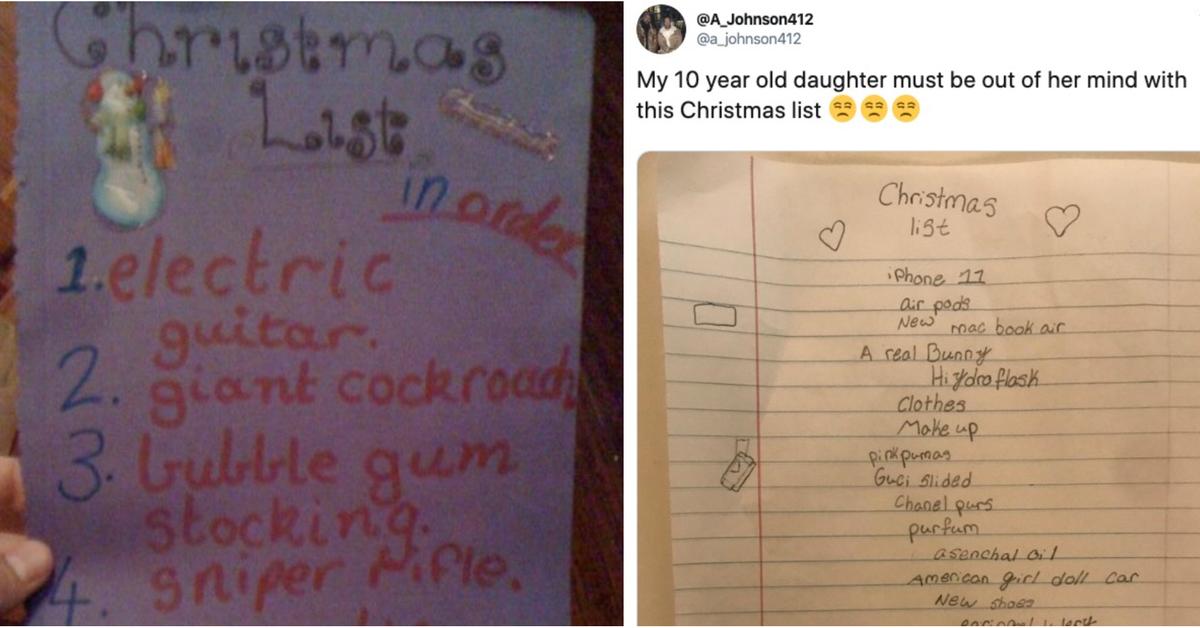 Christmas
List
in order
1. electric
guitar.
2. giant cockroach
3. bubble gum
stocking.
4. sniper rifle.
@A_Johnson412
@a_johnson412
My 10 year old daughter must be out of her mind with
this Christmas list 😒😒😒
Christmas
list
iPhone 11
air pods
New mac book air
A real Bunny
Hydroflask
Clothes
Make up
pink pumas
Guci slided
Chanel purs
purfum
asenchal oil
American girl doll car
New shoes